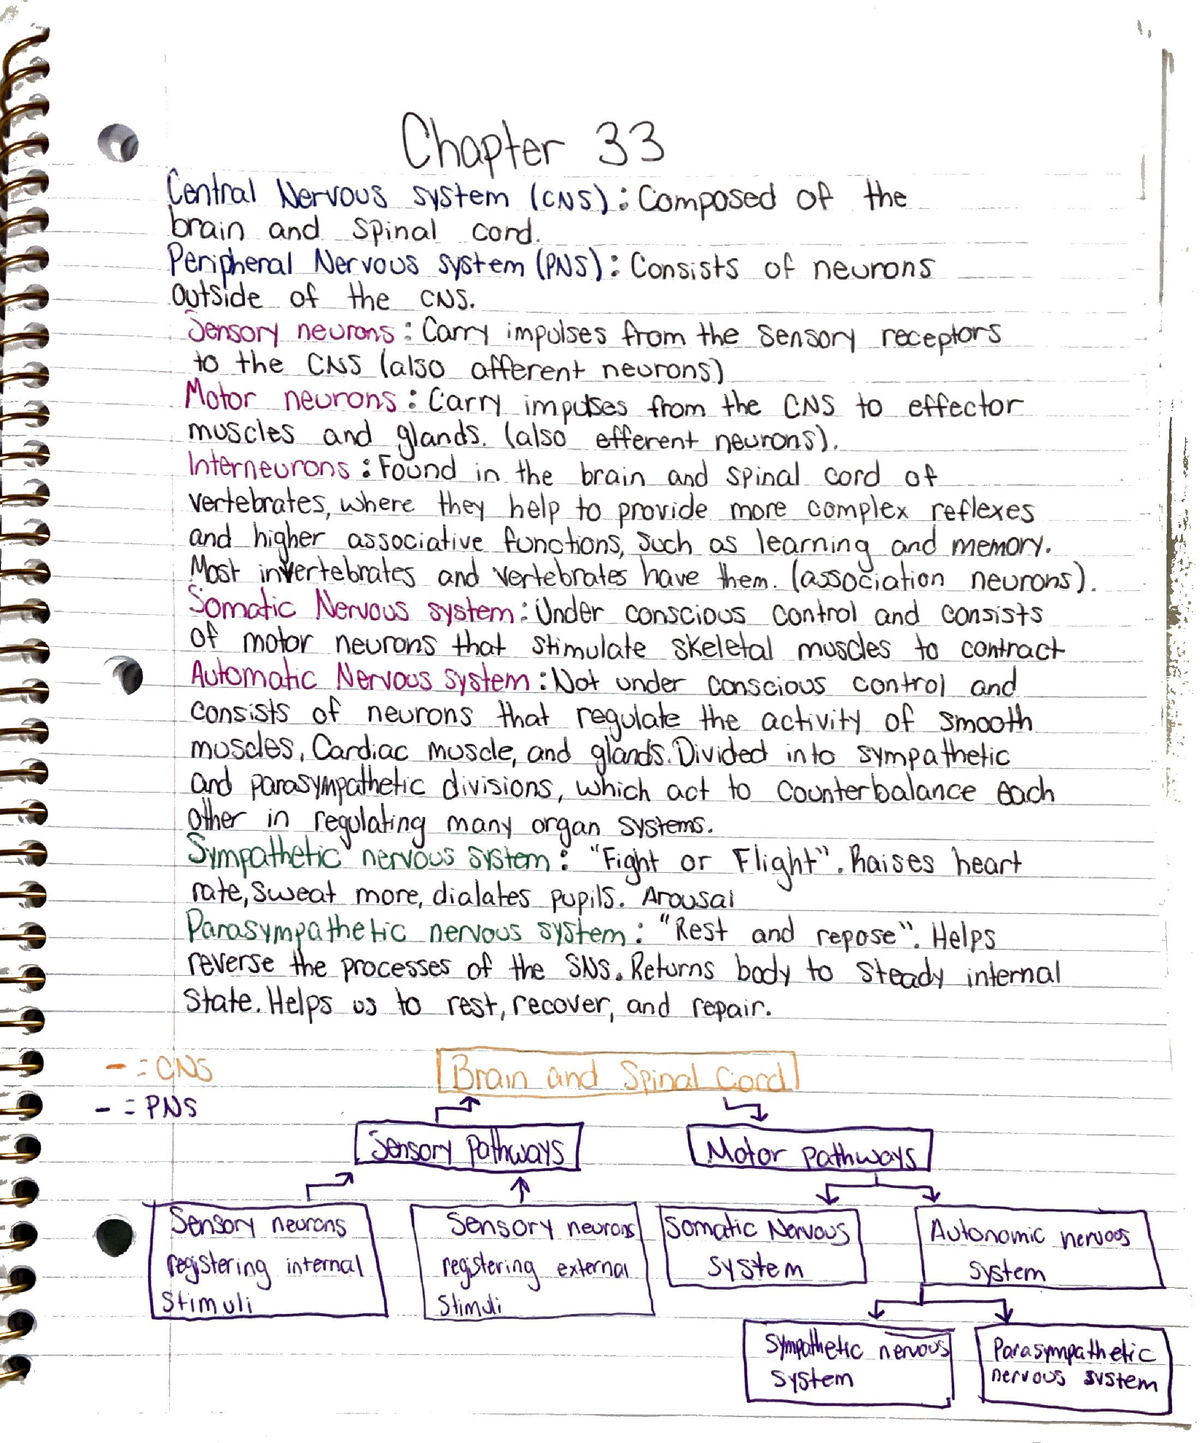 Chapter 33
Central Nervous system (CNS): Composed of the
brain and spinal cord.
Peripheral Nervous system (PNS): Consists of neurons
outside of the CNS.
Sensory neurons: Carry impulses from the sensory receptors
to the CNS (also afferent neurons)
Motor neurons: Carry impulses from the CNS to effector
muscles and glands. (also efferent neurons).
Interneurons: Found in the brain and spinal cord of
vertebrates, where they help to provide more complex reflexes
and higher associative functions, such as learning and memory.
Most invertebrates and vertebrates have them. (association neurons).
Somatic Nervous system: Under conscious control and consists
of motor neurons that stimulate skeletal muscles to contract
Automatic Nervous system: Not under conscious control and
consists of neurons that regulate the activity of smooth
muscles, Cardiac muscle, and glands. Divided into sympathetic
and parasympathetic divisions, which act to counterbalance each
other in regulating many organ systems.
Sympathetic nervous system: "Fight or Flight". Raises heart
rate, sweat more, dialates pupils. Arousal
Parasympathetic nervous system: "Rest and repose". Helps
reverse the processes of the SNS. Returns body to steady internal
state. Helps us to rest, recover, and repair.
- = CNS
Brain and Spinal Cord
- = PNS
Sensory Pathways
Motor pathways
Sensory neurons
registering internal
Stimuli
Sensory neurons
registering external
Stimuli
Somatic Nervous
system
Autonomic nervous
system
Sympathetic nervous
system
Parasympathetic
nervous system